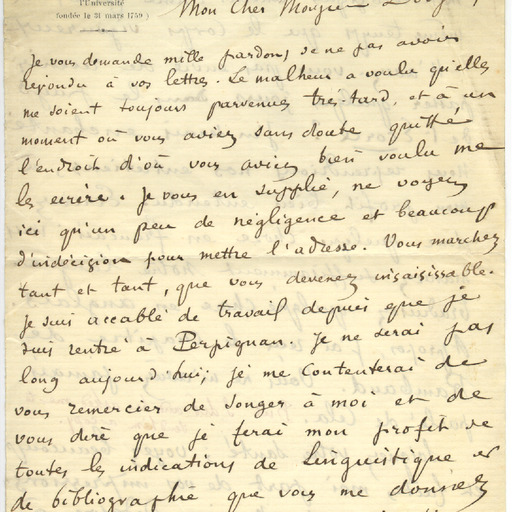 l'Université
(fondée le 31 mars 1759)
Mon Cher Monsieur
Je vous demande mille pardons de ne pas avoir
répondu à vos lettres. Le malheur a voulu qu'elles
me soient toujours parvenues très-tard, et à un
moment où vous aviez sans doute quitté
l'endroit d'où vous aviez bien voulu me
les écrire. Je vous en supplie, ne voyez
ici qu'un peu de négligence et beaucoup
d'indécision pour mettre l'adresse. Vous marchez
tant et tant, que vous devenez insaisissable.
Je suis accablé de travail depuis que je
suis rentré à Perpignan. Je ne serai pas
long aujourd'hui; je me contenterai de
vous remercier de songer à moi et de
vous dire que je ferai mon profit de
toutes les indications de Linguistique et
de bibliographie que vous me donnez